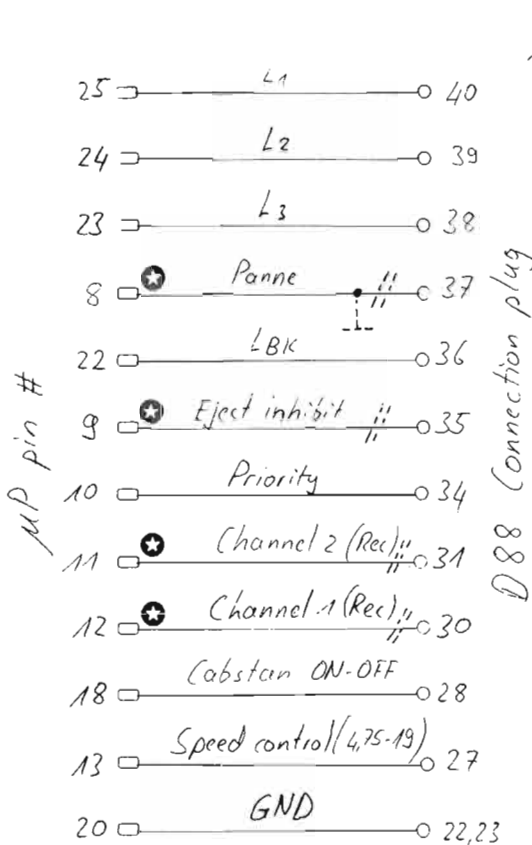 25 L1 40
24 L2 39
23 L3 38
8 Panne 37
22 LBK 36
9 Eject inhibit 35
10 Priority 34
11 Channel 2 (Rec) 31
12 Channel 1 (Rec) 30
18 Cabstan ON-OFF 28
13 Speed control (4,75-19) 27
20 GND 22,23
µP pin #
D88 Connection plug